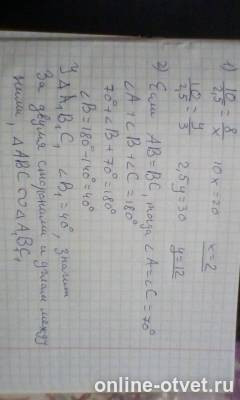 1) 10/2,5 = 8/x    10x=20    x=2
10/2,5 = y/3    2,5y=30    y=12
2) Если AB=BC, тогда ∠A=∠C=70°
∠A+∠B+∠C=180°
70°+∠B+70°=180°
∠B=180°-140°=40°
У ΔA₁B₁C₁ ∠B₁=40°, значит
За двумя сторонами, и углам между
ними, ΔABC∞ΔA₁B₁C₁
online-otvet.ru